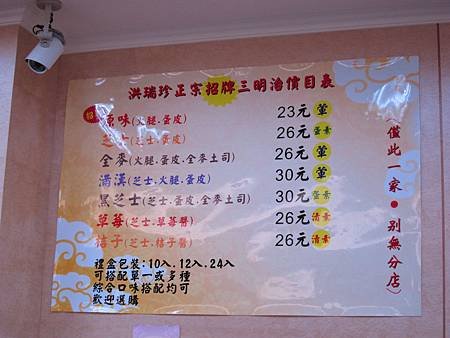 洪瑞珍正宗招牌三明治價目表
原味(火腿.蛋皮) 23元 葷
芝士(芝士.蛋皮) 26元 蛋素
全麥(火腿.蛋皮.全麥土司) 26元 葷
滿漢(芝士.火腿.蛋皮) 30元 葷
黑芝士(芝士.蛋皮.全麥土司) 30元 蛋素
草莓(芝士.草莓醬) 26元 清素
桔子(芝士.桔子醬) 26元 清素
禮盒包裝:10入.12入.24入
可搭配單一或多種
綜合口味搭配均可
歡迎選購
(僅此一家●別無分店)